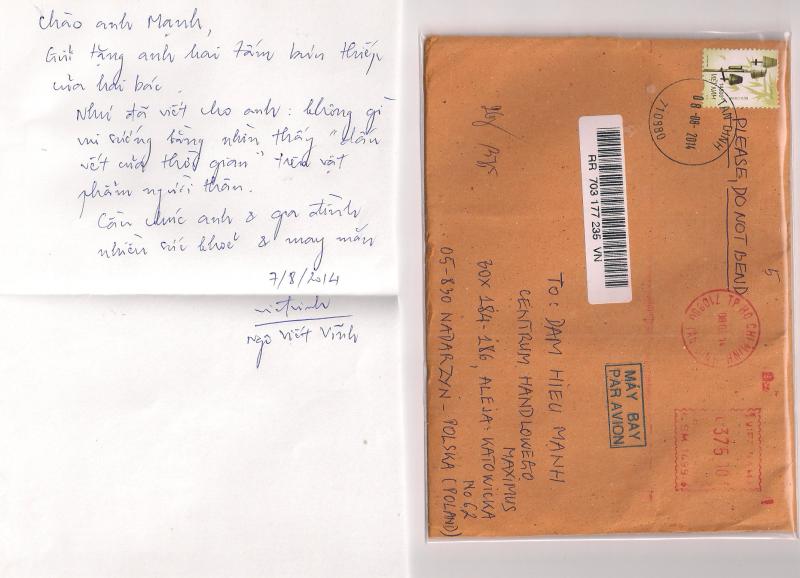 Chào anh Mạnh,
Gửi tặng anh hai tấm bưu thiếp
của hai bác.
Như đã viết cho anh: không gì
vui sướng bằng nhìn thấy "dấu
vết của thời gian" trên vật
phẩm người thân.
Cầu chúc anh & gia đình
nhiều sức khoẻ & may mắn
7/8/2014
Ngô Viết Vĩnh
PLEASE, DO NOT BEND
5
TÂN ĐỊNH
08-08-2014
710980
RR 703 177 235 VN
MÁY BAY
PAR AVION
TP HO CHI MINH
375 10
To: DAM HIEU MANH
CENTRUM HANDLOWEGO
MAXIMUS
BOX 184-186, ALEJA: KATOWICKA
No 62
05-830 NADARZYN - POLSKA (POLAND)